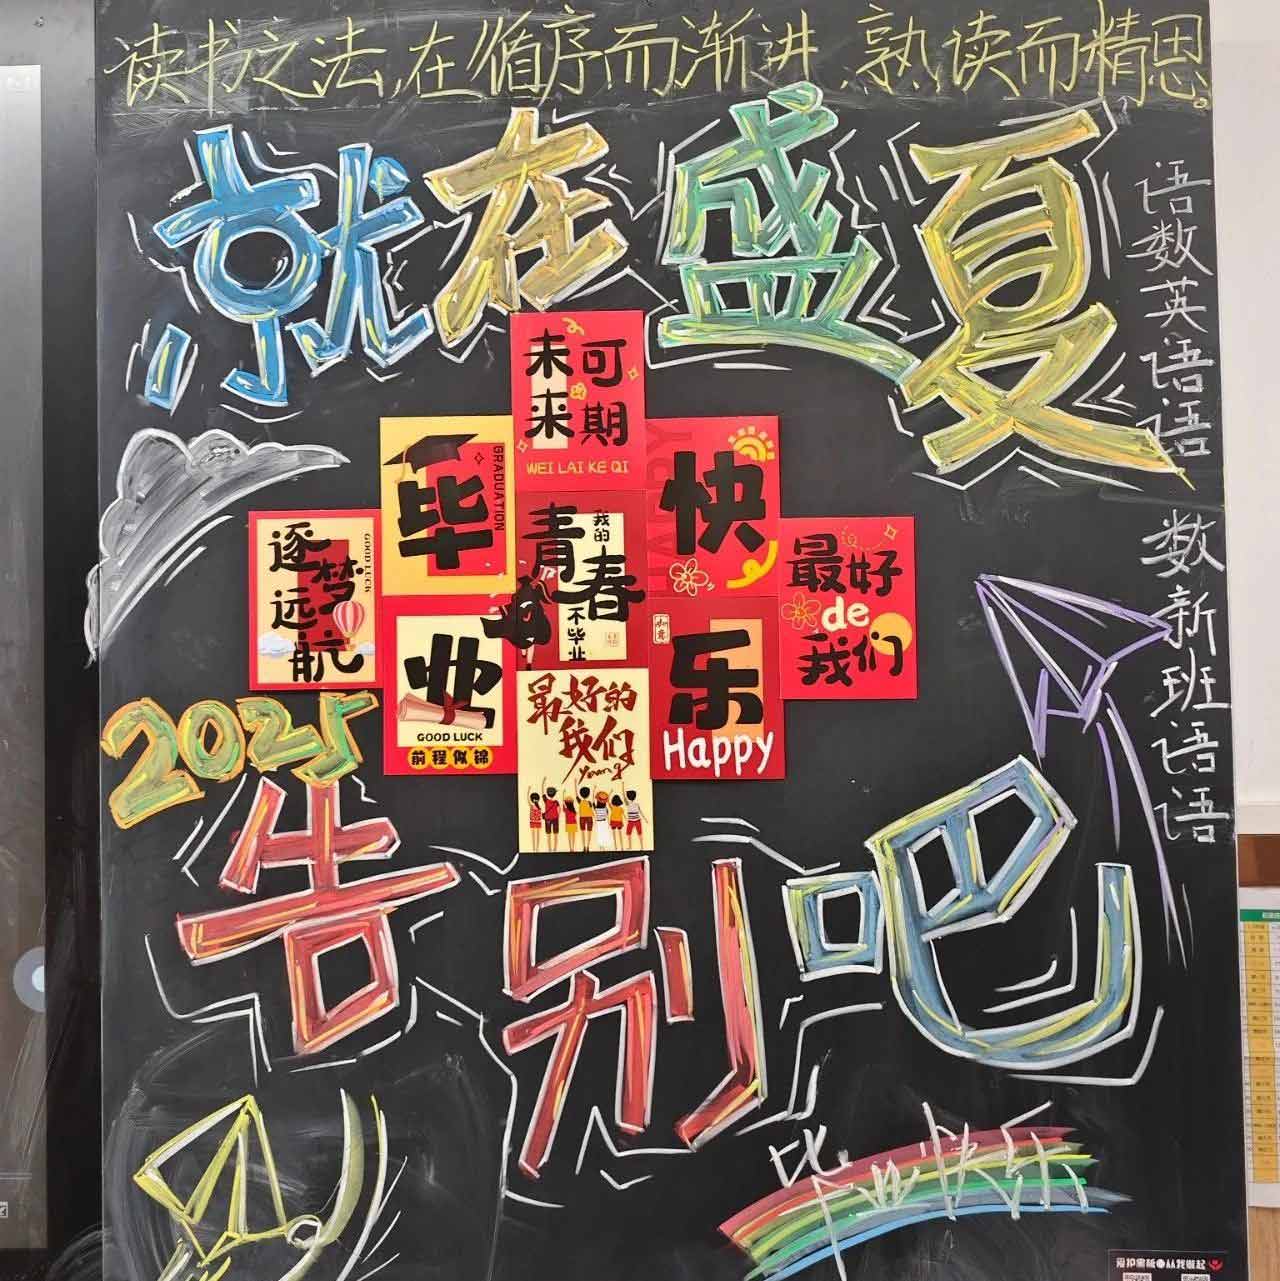 读书之法,在循序而渐进,熟读而精思。
就在盛夏
语数英语语
数新班语语
未来可期
WEI LAI KE QI
毕
GRADUATION
快
逐梦远航
GOOD LUCK
我的青春不毕业
最好de我们
业
GOOD LUCK
前程似锦
乐
Happy
最好的我们
young
2025
告别吧
毕业快乐
爱护黑板从我做起